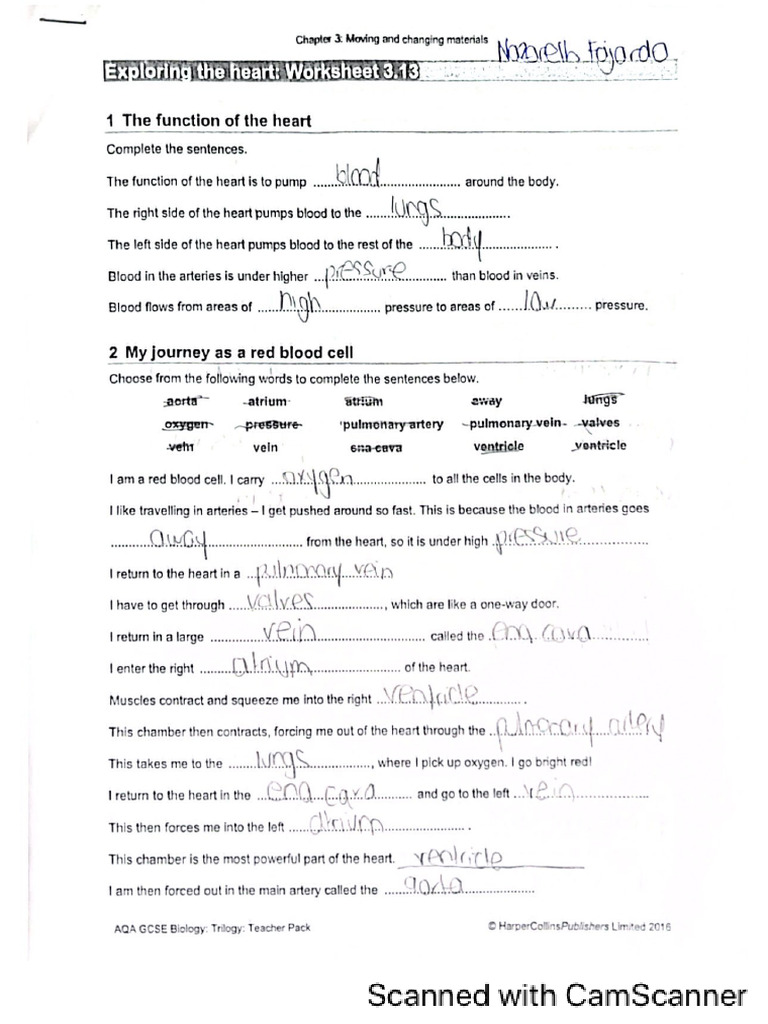 Chapter 3: Moving and changing materials
Nazareth Fajardo
Exploring the heart: Worksheet 3.13
1 The function of the heart
Complete the sentences.
The function of the heart is to pump ......blood...................... around the body.
The right side of the heart pumps blood to the ......lungs..................
The left side of the heart pumps blood to the rest of the ......body.................. .
Blood in the arteries is under higher ...pressure............ than blood in veins.
Blood flows from areas of ......high.................. pressure to areas of ......low......... pressure.
2 My journey as a red blood cell
Choose from the following words to complete the sentences below.
aorta atrium atrium away lungs
oxygen pressure pulmonary artery pulmonary vein valves
vein vein ena cava ventricle ventricle
I am a red blood cell. I carry ...oxygen.................. to all the cells in the body.
I like travelling in arteries – I get pushed around so fast. This is because the blood in arteries goes
............away........................ from the heart, so it is under high .pressure..................
I return to the heart in a ..pulmonary vein
I have to get through .....valves..............., which are like a one-way door.
I return in a large ...............vein........................ called the .ena cava............
I enter the right .........atrium..................... of the heart.
Muscles contract and squeeze me into the right ..ventricle............ .
This chamber then contracts, forcing me out of the heart through the ..pulmonary artery
This takes me to the .......lungs..............., where I pick up oxygen. I go bright red!
I return to the heart in the ...ena cava......... and go to the left ...vein..................
This then forces me into the left ......atrium..................... .
This chamber is the most powerful part of the heart. ventricle
I am then forced out in the main artery called the ......aorta..................
AQA GCSE Biology: Trilogy: Teacher Pack
© HarperCollinsPublishers Limited 2016
Scanned with CamScanner